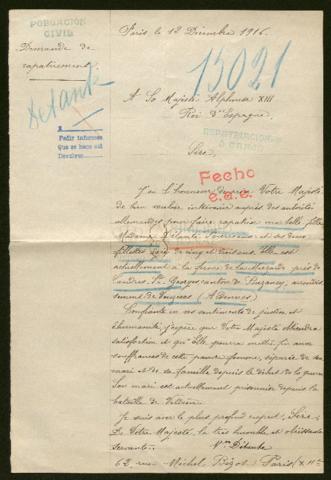 POBLACIÓN
CIVIL
Paris le 12 Décembre 1916.
Demande de
rapatriement
15021
A Sa Majesté Alphonse XIII
Roi d'Espagne,
Detank
REPATRIACION
Pedir informes
Que se hace así
Decirlo
Sire,
Fecho
J'ai l'honneur de prier Votre Majesté
de bien vouloir intervenir auprès des autorités
allemandes pour faire rapatrier ma belle fille
Madame et ses deux
fillettes de cinq et trois ans. Elle est
actuellement à la ferme de près de
Landres St Georges canton de Buzancy, arrondis
sement de Vouziers (Ardennes)
Confiante en vos sentiments de justice et
d'humanité, j'espère que Votre Majesté obtiendra
satisfaction et qu'Elle pourra mettre fin aux
souffrances de cette pauvre femme, séparée de son
mari et de sa famille depuis le début de la guerre
Son mari est actuellement prisonnier depuis la
bataille de Verdun.
Je suis avec le plus profond respect, Sire,
De Votre Majesté, la très humble et obéissante
servante.
62, rue Michel Bizot. Paris (XIIe